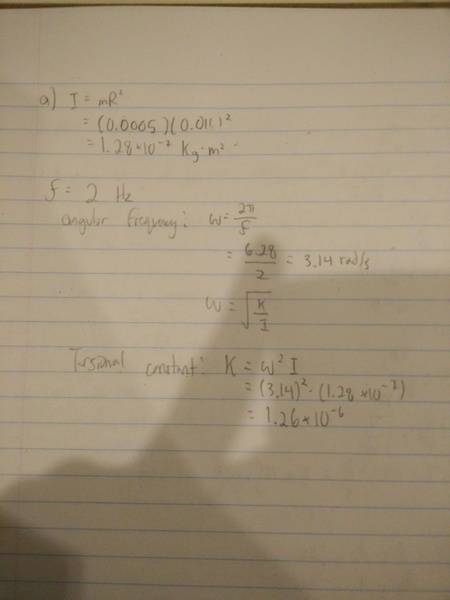 a) I = mR²
= (0.0005)(0.011)²
= 1.28*10⁻⁷ Kg·m²
f = 2 Hz
angular frequency: ω = 2π/f
= 6.28/2 = 3.14 rad/s
ω = √K/I
Torsional constant: K = ω² I
= (3.14)² · (1.28*10⁻⁷)
= 1.26*10⁻⁶